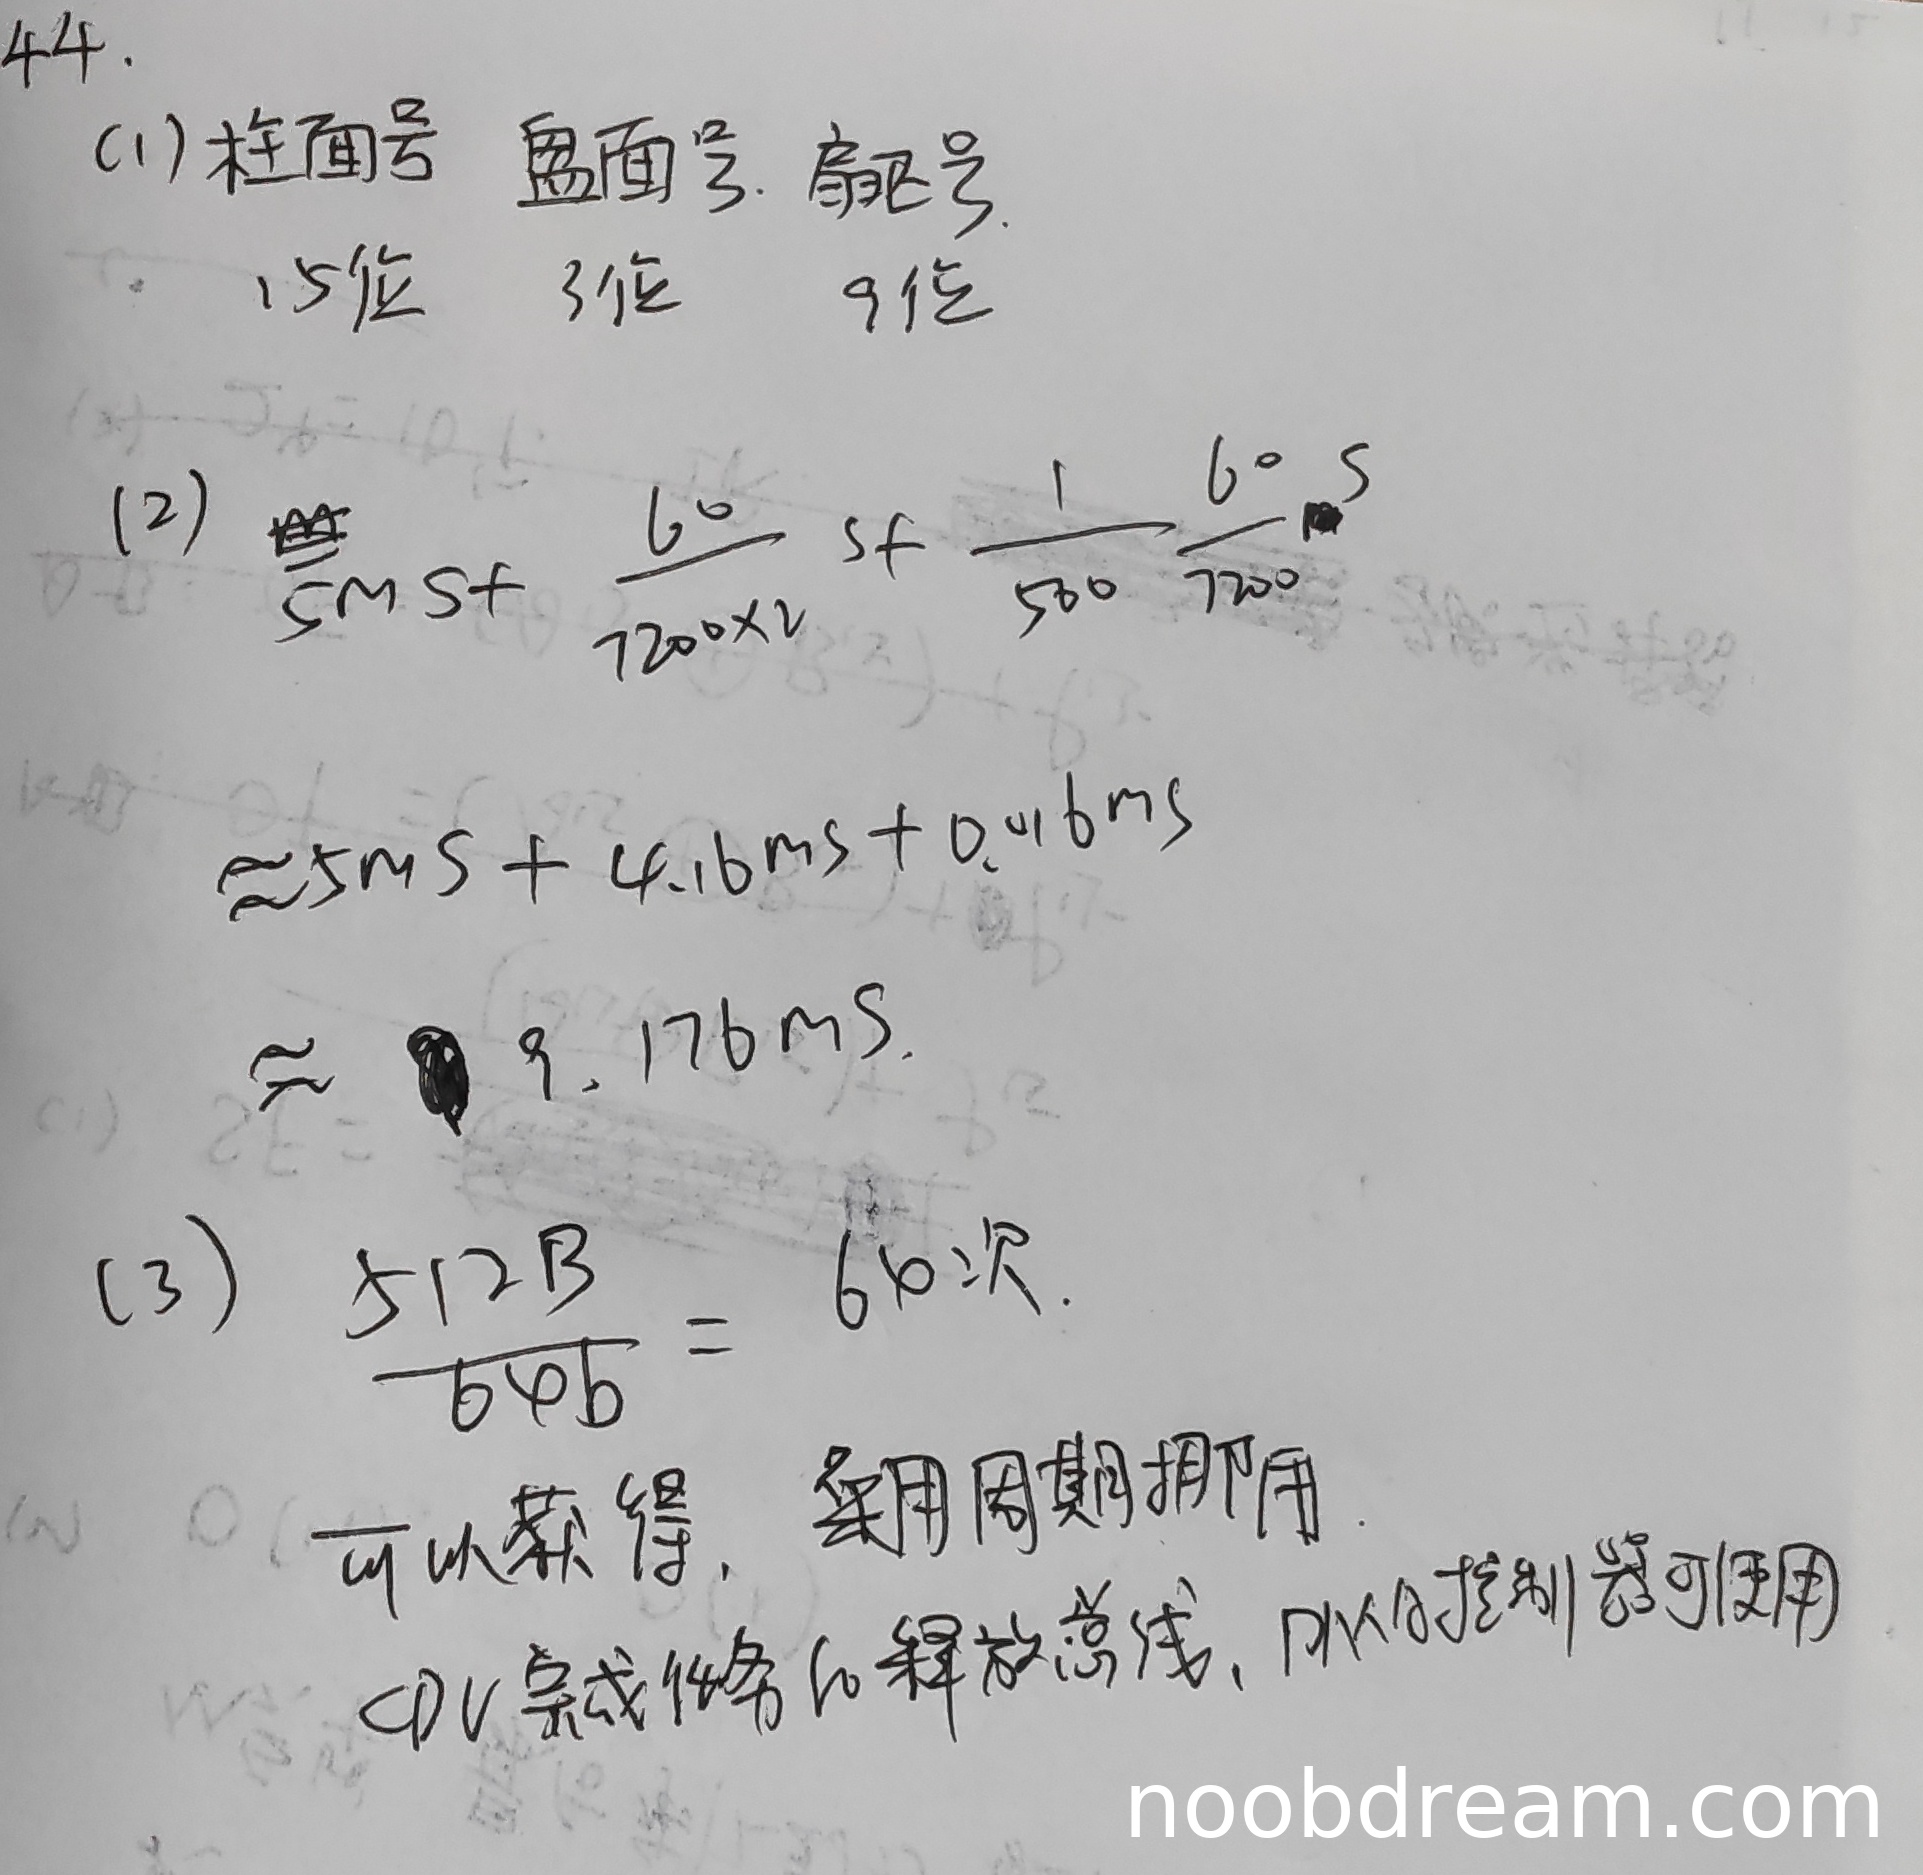 44.
(1) 柱面号 盘面号. 扇区号.
15位 3位 9位
(2) 5ms + 60/(7200×2) s + 1/500 60/7200 s
≈ 5ms + 4.16ms + 0.016ms
≈ 9.176ms.
(3) 512B/64b = 64次.
可以获得, 采用周期挪用.
CPU完成任务后释放总线, DMA控制器可使用
noobdream.com